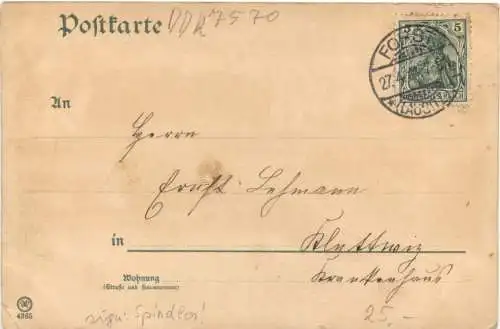 Postkarte
DDR 7570
5
27.
(LAUSITZ)
An
Herrn
Ernst Lehmann
in Klettwiz
Krankenhaus
Wohnung
(Straße und Hausnummer)
4365
sign. Spindler!
25,-